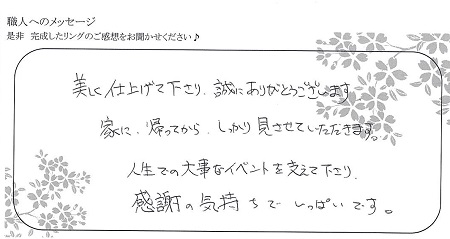 職人へのメッセージ
是非 完成したリングのご感想をお聞かせください♪
美しく仕上げて下さり、誠にありがとうございます。
家に、帰ってから、しっかり見させていただきます。
人生での大事なイベントを支えて下さり、
感謝の気持ちでいっぱいです。